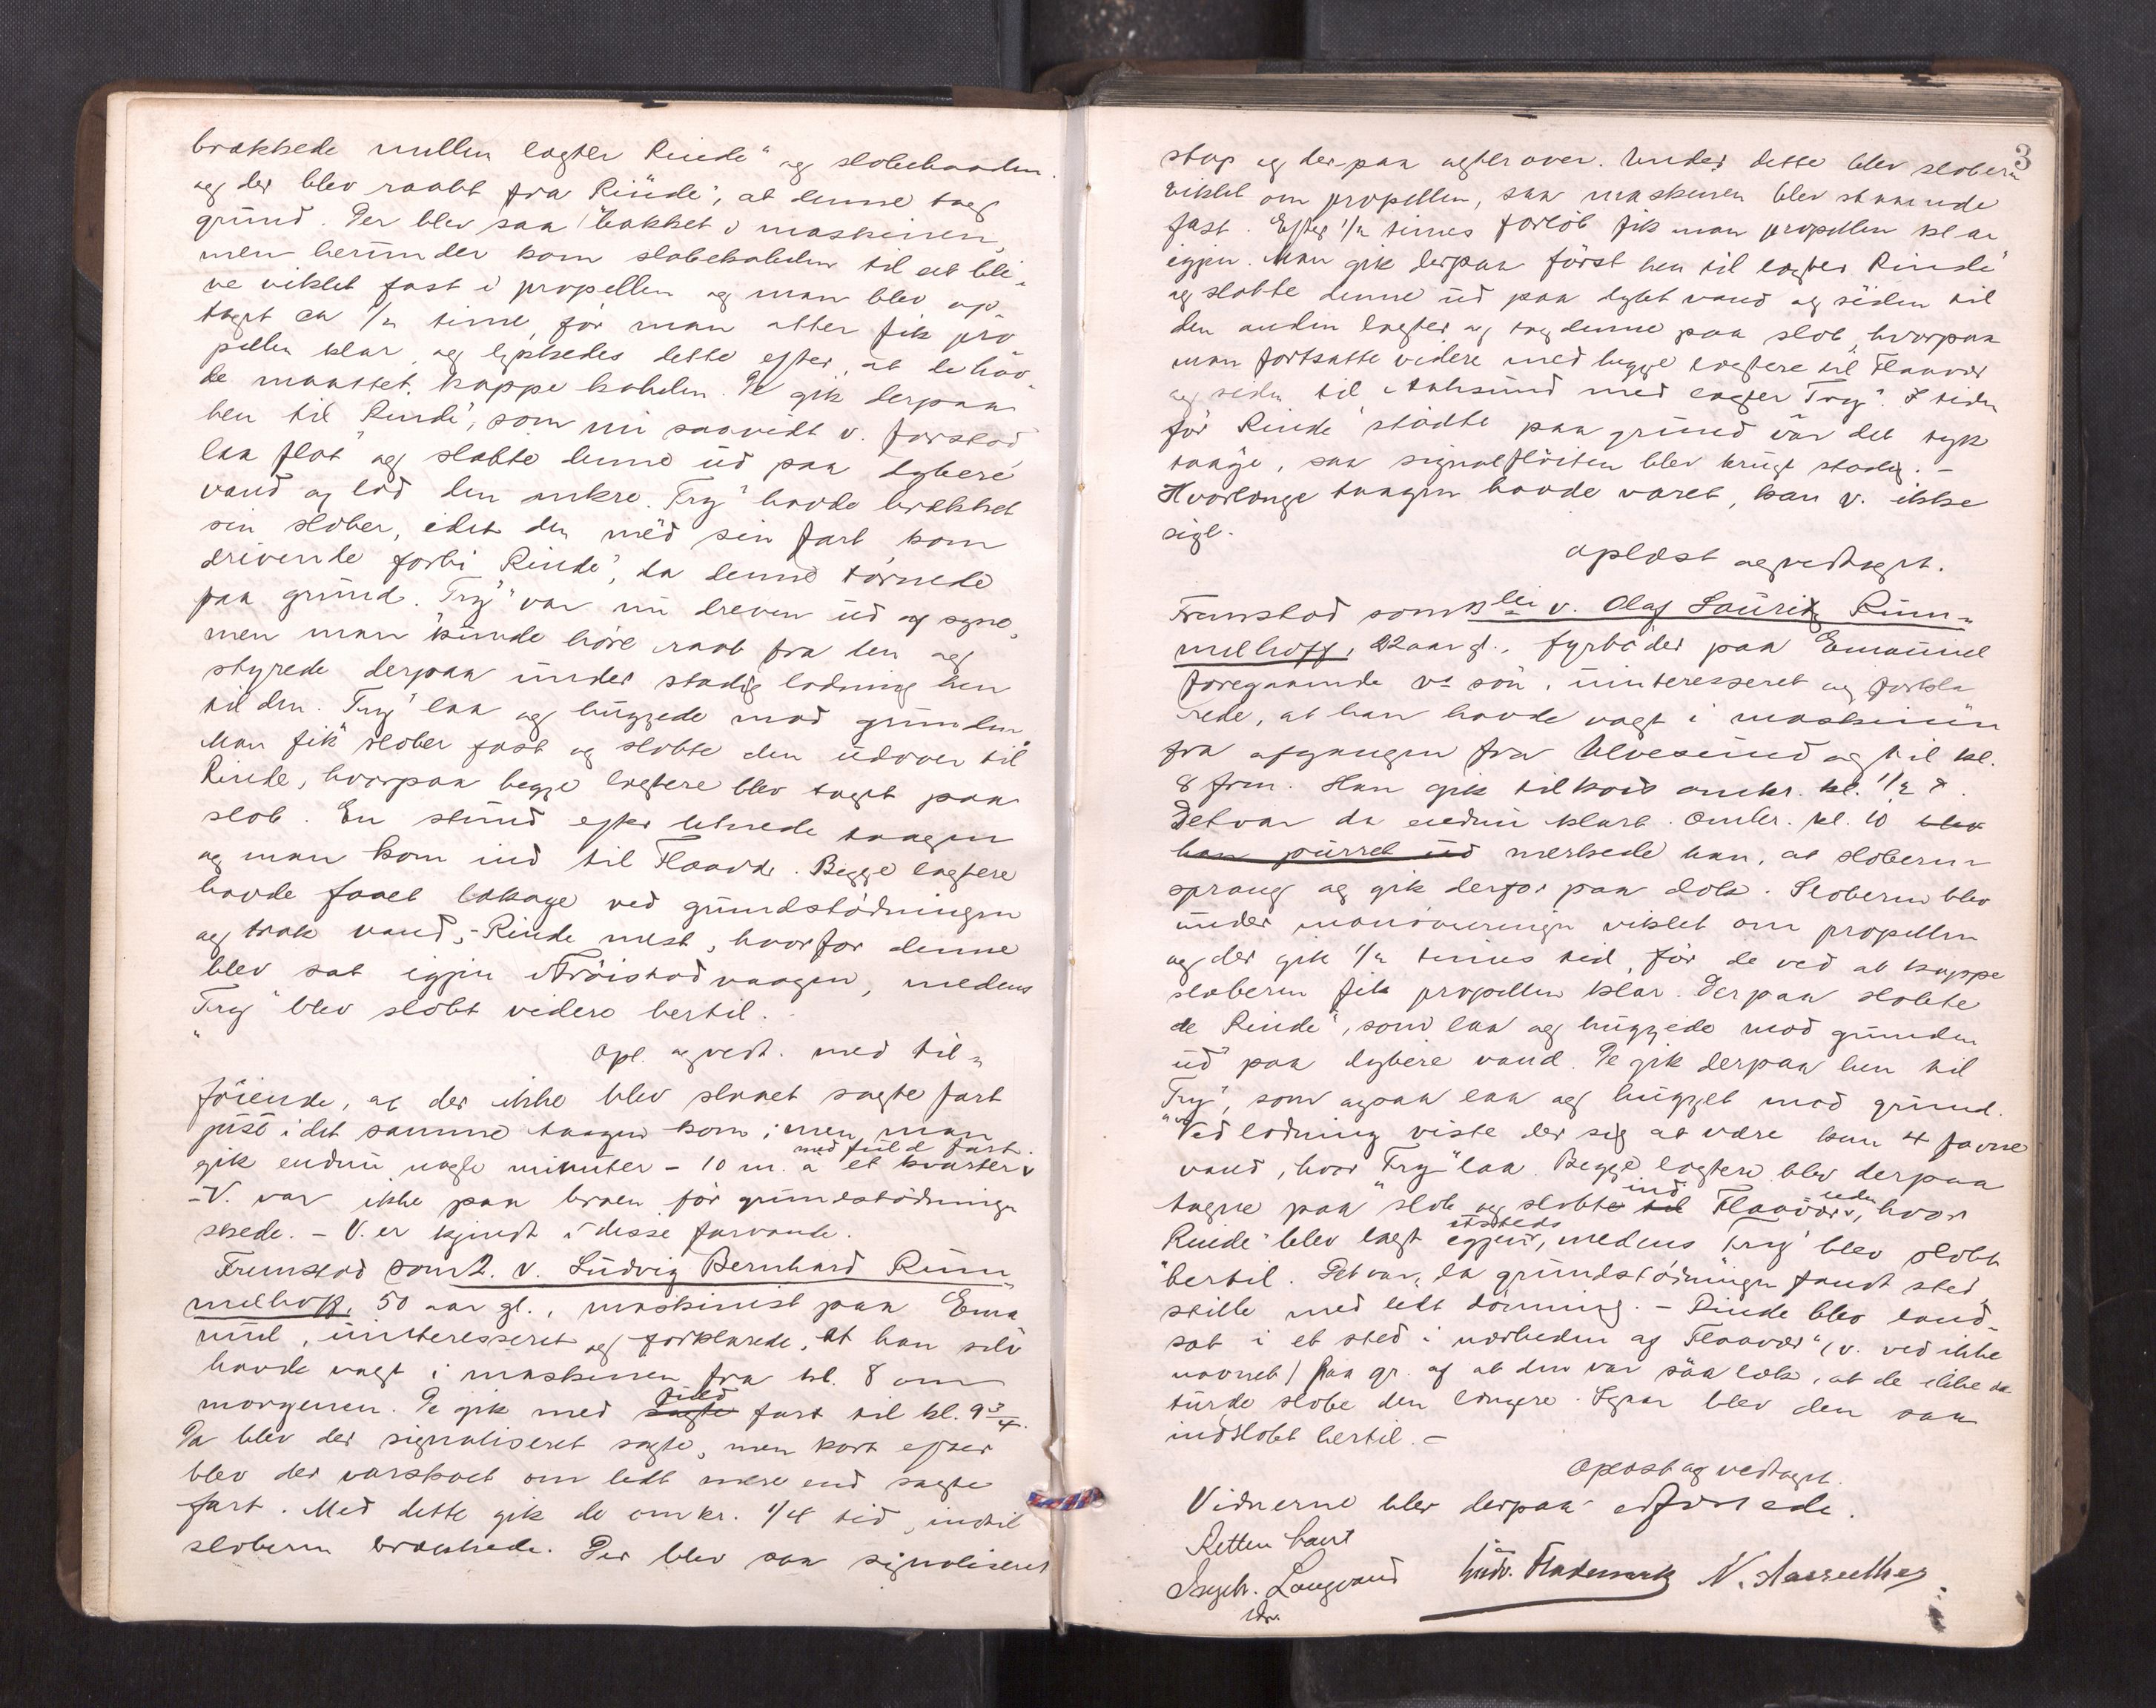 brækkede mellem lægter Rinde" og slæbebaaden.
og der blev raabt fra Rinde", at denne tog
grund. Der blev saa bakket i maskinen,
men herunder kom slæbekabelen til at bli-
ve viklet fast i propellen og man blev op-
taget ca 1/2 time, før man atter fik pro
pellen klar, og lykkedes dette efter, at de hav-
de maattet kappe kabelen. De gik derpaa
hen til Rinde", som nu saavidt v. forstod
laa flot og slæbte denne ud paa dybere
vand og lod den ankre. Try" havde brækket
sin slæber, idet den med sin fart kom
drivende forbi Rinde", da denne tørnede
paa grund. Try" var nu dreven ud af syne,
men man kunde høre raab fra den og
styrede derpaa under stadig lodning hen
til den. Try" laa og huggede mod grunden.
Man fik slæber fast og slæbte den udover til
Rinde, hvorpaa begge lægtere blev taget paa
slæb. En stund efter letnede taagen
og man kom ind til Flaavær. Begge lægtere
havde faaet lækage ved grundstødningen
og trak vand, - Rinde mest, hvorfor denne
blev sat igjen i Frøistadvaagen, medens
Try" blev slæbt videre hertil.
Opl. og vedt. med til-
føiende, at der ikke blev slaaet sagte fart
just i det samme taagen kom; men man
gik endnu nogle minutter - 10 m. a et kvarter med fuld fart.
- V. var ikke paa broen før grundstødningen
skede. - V. er kjendt i disse farvande.
Fremstod som 2. v. Ludvig Bernhard Rum-
melhoff, 50 aar gl., maskinist paa Ema
nuel, uinteresseret og forklarede, at han selv
havde vagt i maskinen fra kl. 8 om
morgenen. De gik med sagte fuld fart til kl. 9 3/4.
Da blev der signaliseret sagte, men kort efter
blev der varskoet om lidt mere end sagte
fart. Med dette gik de omkr. 1/4 tid, indtil
slæberen brækkede. Der blev saa signaliseret
3
stop og derpaa agterover. Under dette blev slæberen
viklet om propellen, saa maskinen blev staaende
fast. Efter 1/2 times forløb fik man propellen klar
igjen. Man gik derpaa først hen til lægter Rinde"
og slæbte denne ud paa dybt vand og siden til
den anden lægter og tog denne paa slæb, hvorpaa
man fortsatte videre med begge lægtere til Flaavær
og siden til Aalesund med lægter Try". I tiden
før Rinde stødte paa grund var det tyk
taage, saa signalfløiten blev brugt stadig. -
Hvorlænge taagen havde været, kan v. ikke
sige.
Oplæst og vedtaget.
Fremstod som 3die v. Olaf Lauritz Rum-
melhoff, 22 aar gl., fyrbøder paa Emanuel
foregaaende vs søn, uinteresseret og forkla
rede, at han havde vagt i maskinen
fra afgangen fra Ulvesund og til kl.
8 frm. Han gik tilkøis omkr. kl. 1/2 9.
Det var da endnu klart. Omkr. kl. 10 blev
han purret ud merkede han, at slæberen
sprang og gik derfor paa dæk. Slæberen blev
under manøvreringen viklet om propellen
og der gik 1/2 times tid, før de ved at kappe
slæberen fik propellen klar. Derpaa slæbte
de Rinde", som laa og huggede mod grunden
ud paa dybere vand. De gik derpaa hen til
Try", som ogsaa laa og hugget mod grund.
Ved lodning viste der sig at være kun 4 favne
vand, hvor Try" laa. Begge lægtere blev derpaa
tagne paa slæb og slæbte til ind Flaavær, hvor
Rinde" blev lagt etsteds igjen, medens Try" blev slæbt
hertil. Det var, da grundstødningen fandt sted,
stille med lidt dønning. - Rinde blev land-
sat i et sted i nærheden af Flaavær" (v. ved ikke
navnet) paa gr. af at den var saa læk, at de ikke
turde slæbe den længere. Igaar blev den saa
indslæbt hertil. -
Oplæst og vedtaget.
Vidnerne blev derpaa edfæstede.
Retten hævet
Ingebr. Langvand